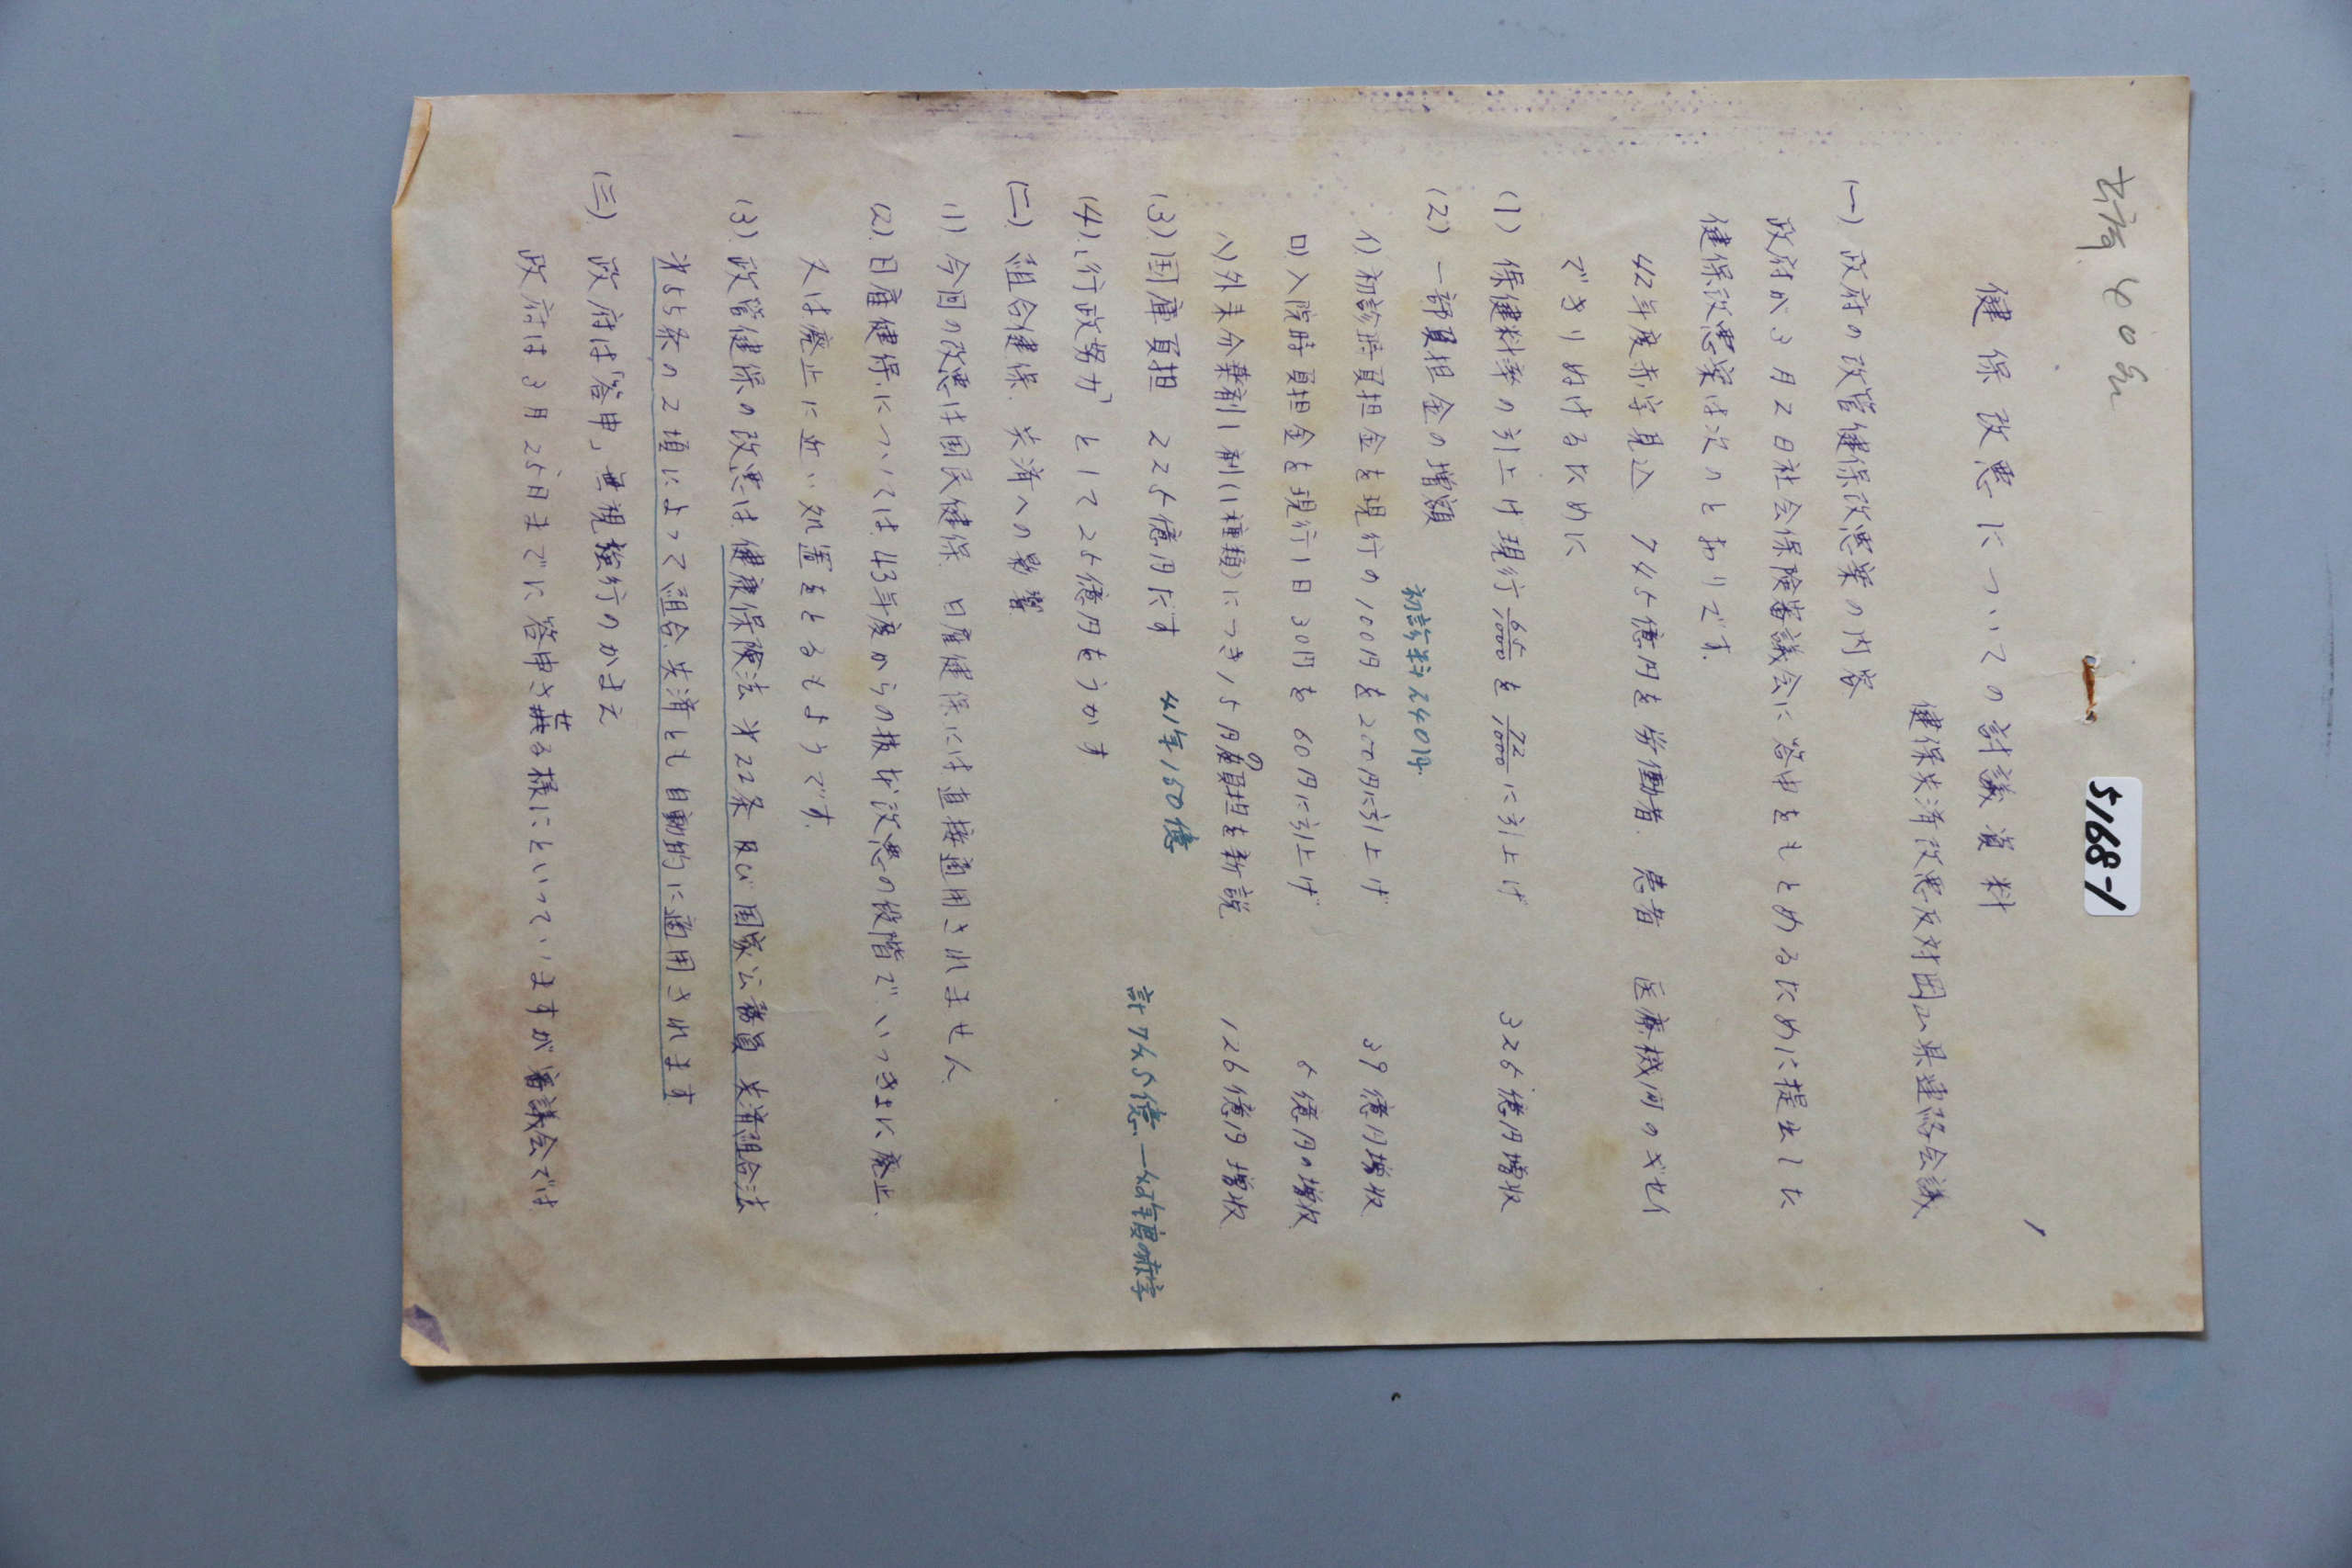 5168-1
1
健保改悪についての討議資料
健保共済改悪反対岡山県連絡会議
(一) 政府の政管健保改悪案の内容
政府が3月2日社会保険審議会に答申をもとめるために提出した
健保改悪案は次のとおりです。
42年度赤字見込 745億円を労働者、患者 医療機関のギセイ
できりぬけるために
(1) 保健料率の引上げ現行65/1000を72/1000に引上げ 326億円増収
(2) 一部負担金の増額
初診料240円
イ) 初診時負担金を現行の100円を200円に引上げ 39億円増収
ロ) 入院時負担金を現行1日30円を60円に引上げ 6億円の増収
ハ) 外来分薬剤1剤(1種類)につき15円の負担を新説 126億円増収
(3) 国庫負担 225億円だす 41年150億
計745億、一42年度の赤字
(4) 「行政努力」として25億円をうかす
(二) 組合健保、共済への影響
(1) 今回の改悪は国民健保、日雇健保には直接適用されません、
(2) 日雇健保については、43年度からの抜本改悪の段階で、いっきょに廃止、
又は廃止に近い処置をとるもようです。
(3) 政管健保の改悪は、健康保険法 才22条 及び 国家公務員 共済組合法
才55条の2項によって、組合、共済とも自動的に適用されます
(三) 政府は「答申」無視強行のかまえ
政府は3月25日までに答申される様にといっていますが、審議会では